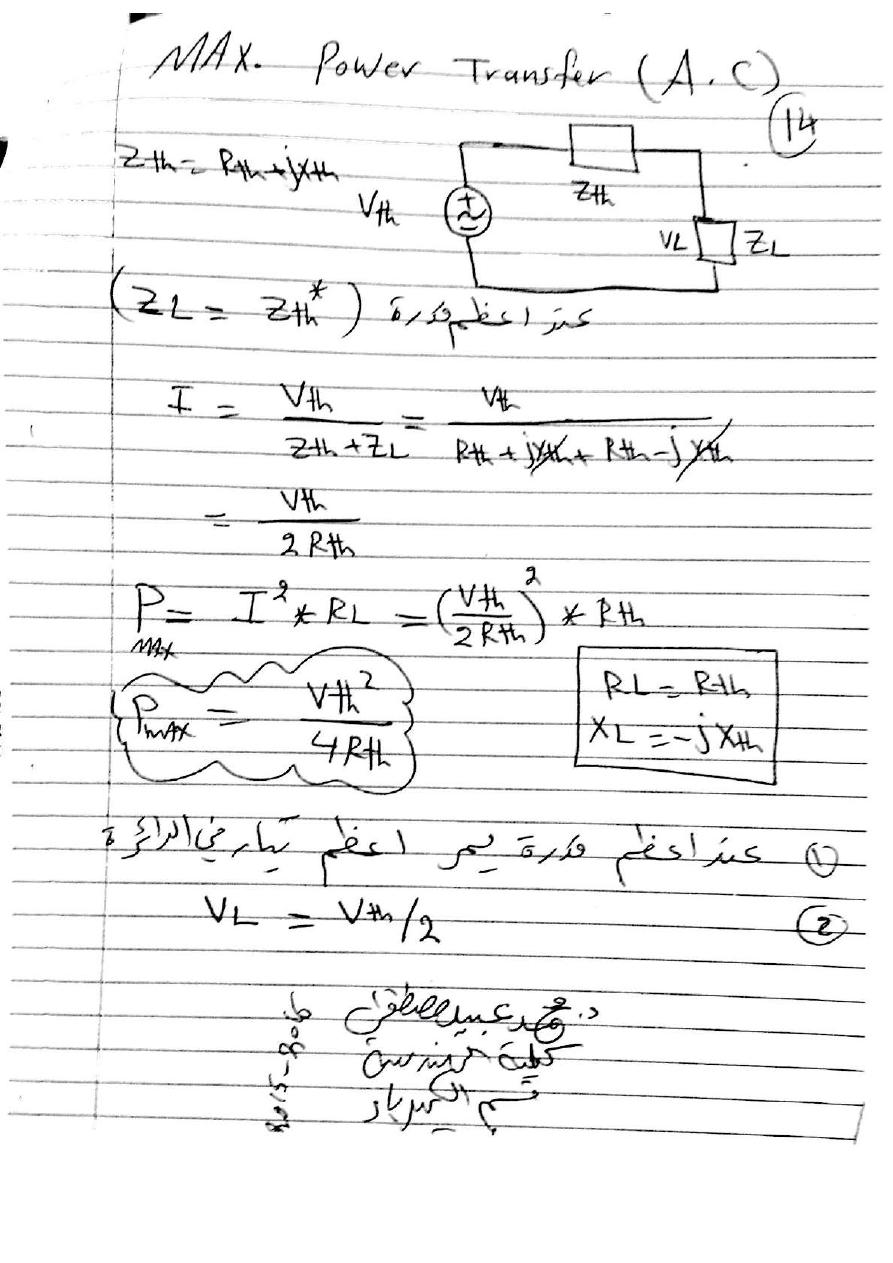 MAX. Power Transfer (A.C)
14
Zth = Rth + jXth
Zth
Vth
+
VL
ZL
(ZL = Zth*) عند اعظم قدرة
I = Vth / Zth + ZL = Vth / Rth + jXth + Rth - jXth
= Vth / 2 Rth
PMAX = I² * RL = (Vth / 2 Rth)² * Rth
PMAX = Vth² / 4 Rth
RL = Rth
XL = -jXth
① عند اعظم قدرة يمر اعظم تيار في الدائرة
② VL = Vth/2
د. محمد عبيد
كلية هندسة
قسم الكهرباء